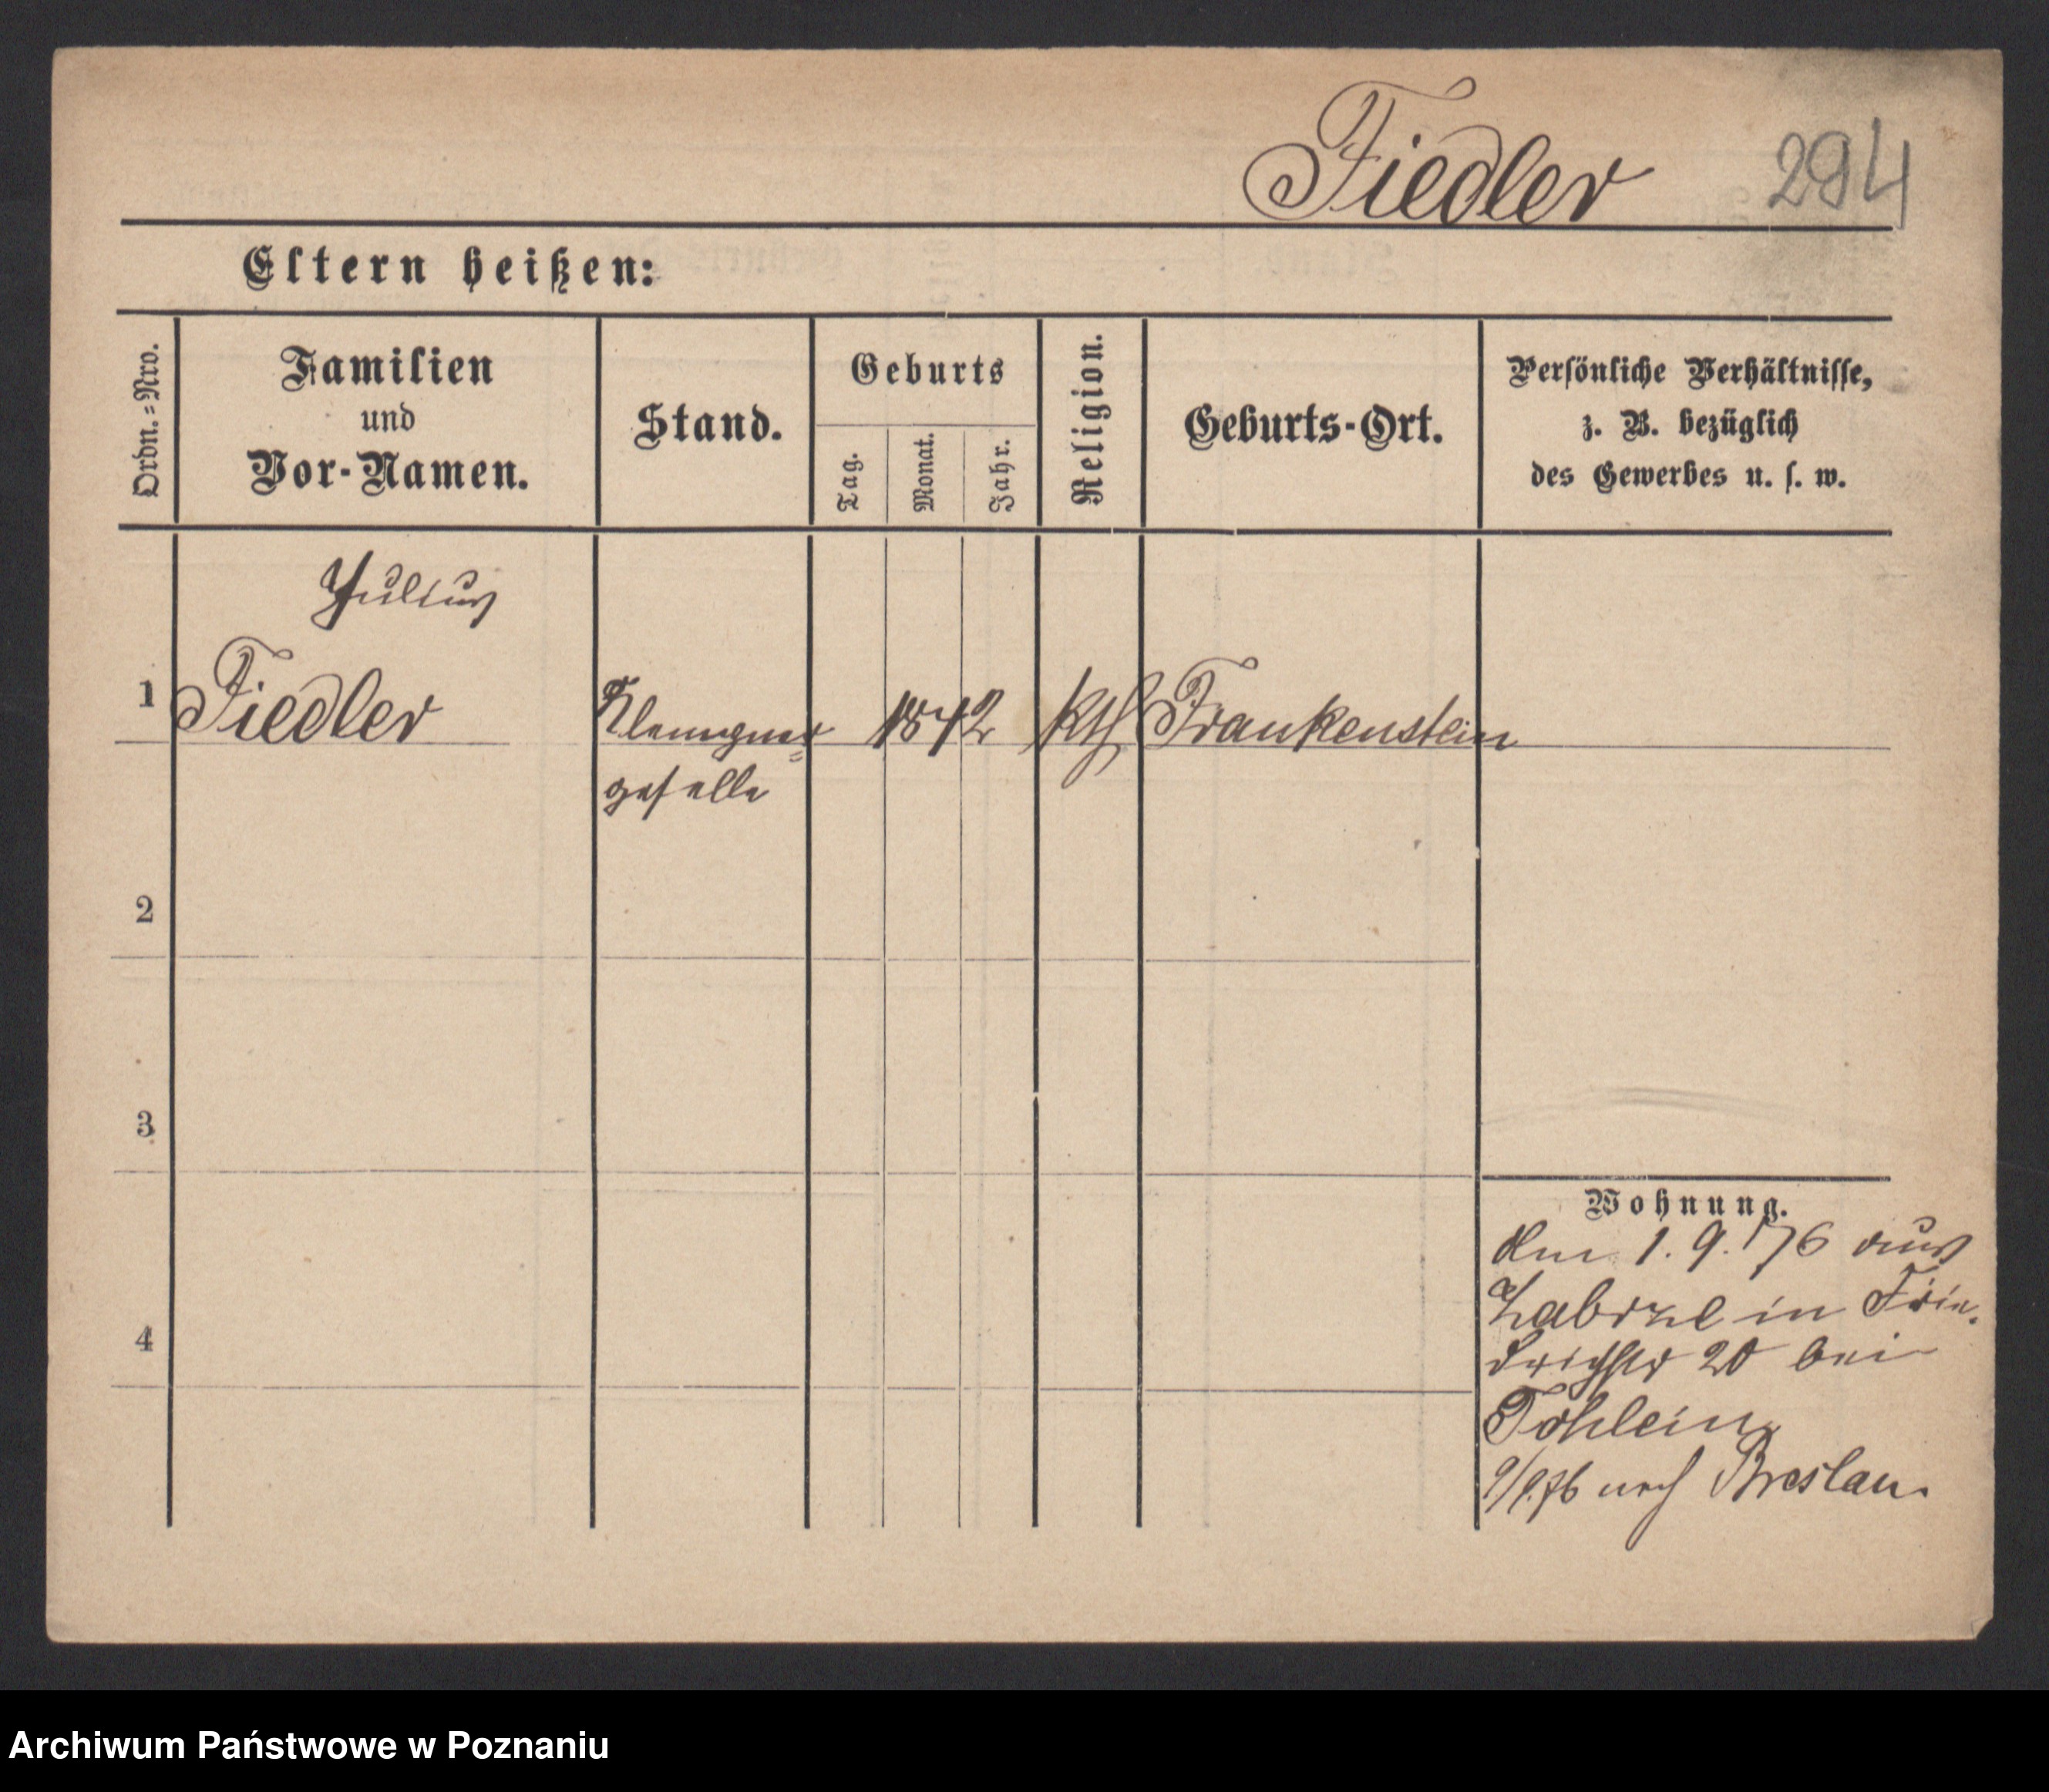 Fiedler 294
Eltern heißen:
Ordn.=Nro.
Familien
und
Vor-Namen.
Stand.
Geburts
Tag.
Monat.
Jahr.
Religion.
Geburts-Ort.
Persönliche Verhältnisse,
z. B. bezüglich
des Gewerbes u. s. w.
Julius
1 Fiedler Klempner= 1842 kth Frankenstein
geselle
2
3
4
Wohnung.
1. 9. 76 aus
Zabrze in Frie-
drichstr 20 bei
9/9.76 nach Breslau.
Archiwum Państwowe w Poznaniu